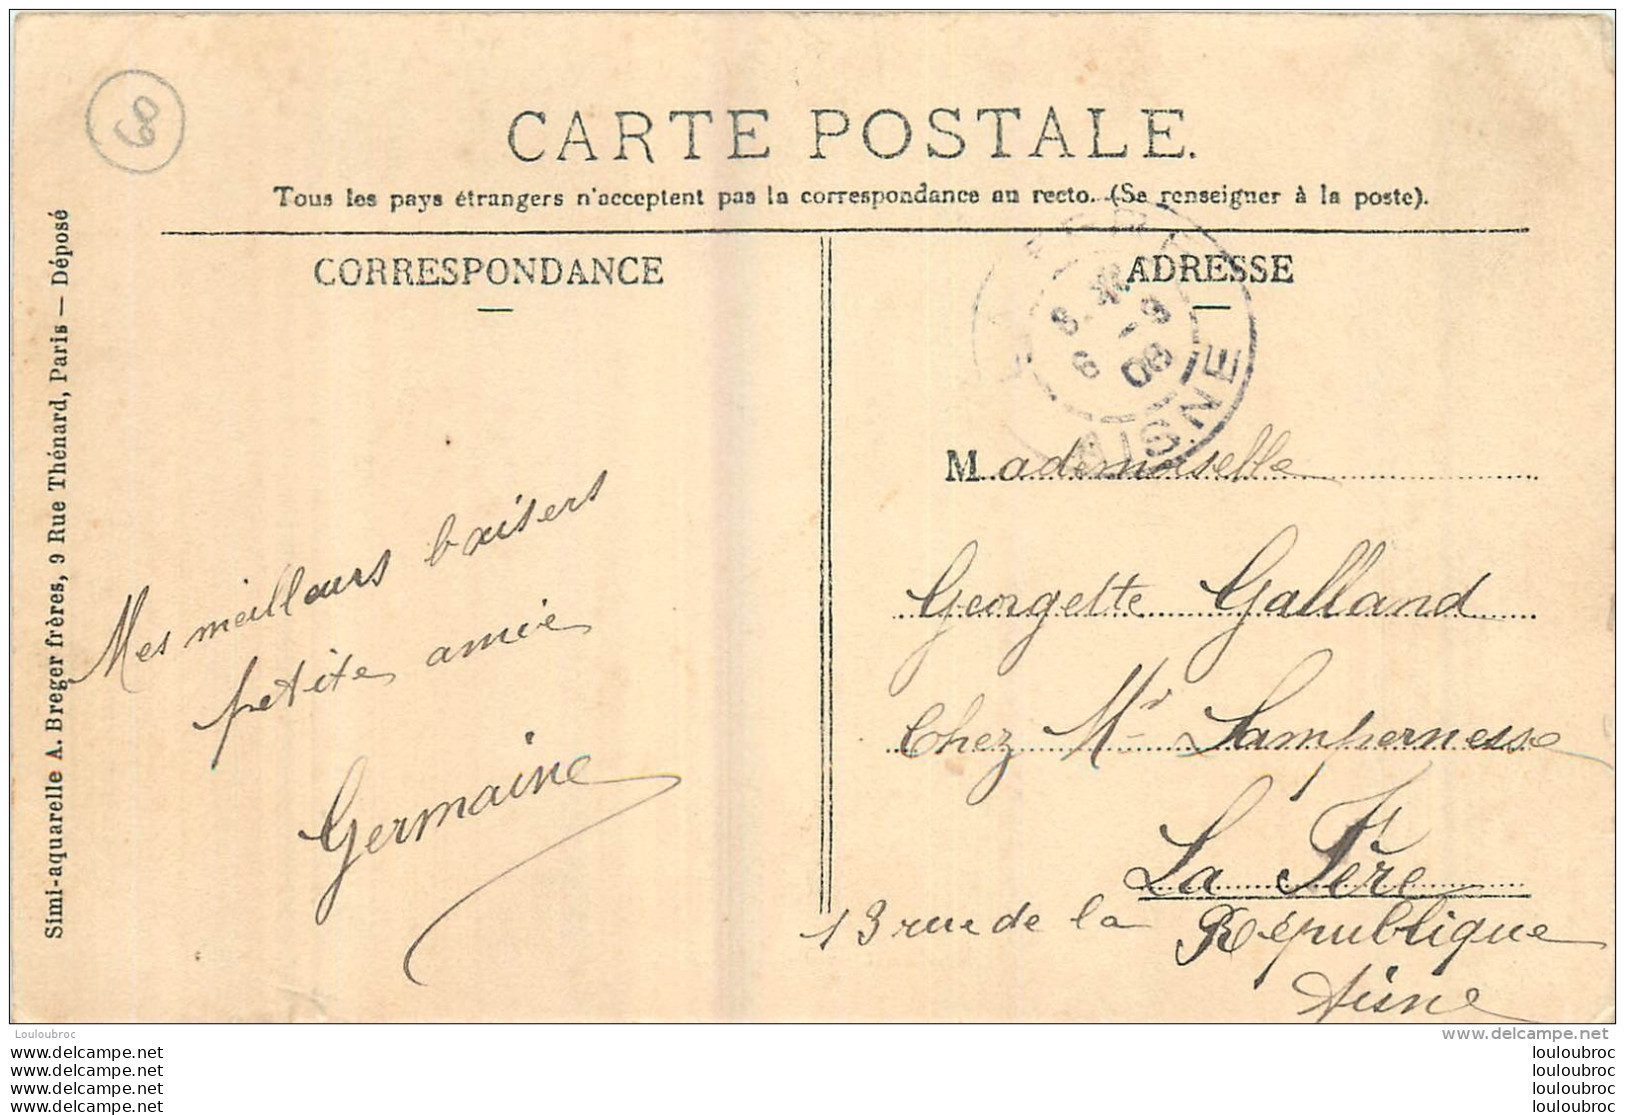 68
CARTE POSTALE.
Tous les pays étrangers n'acceptent pas la correspondance au recto. (Se renseigner à la poste).
CORRESPONDANCE
Mes meilleurs baisers
petite amie
Germaine
ADRESSE
AISNE
Mademoiselle
Georgette Galland
Chez Mr Lampernesse
La Fère
13 rue de la République
Aisne
Simi-aquarelle A. Breger frères, 9 Rue Thénard, Paris — Déposé
Louloubroc
www.delcampe.net
www.delcampe.net
www.delcampe.net
www.delcampe.net
www.delcampe.net
louloubroc
louloubroc
louloubroc
louloubroc